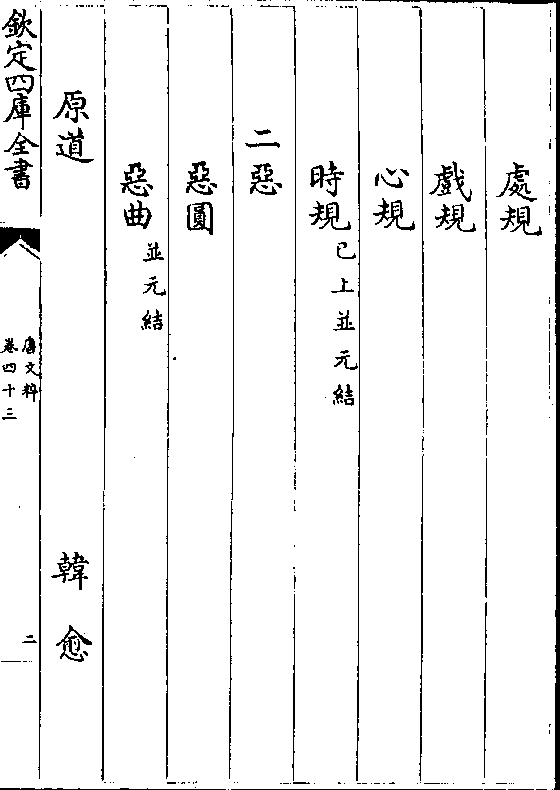 處規
戲規
心規
時規已上並元結
二惡
惡圓
惡曲並元結
原道 韓愈
欽定四庫全書
唐文粹
卷四十三
二